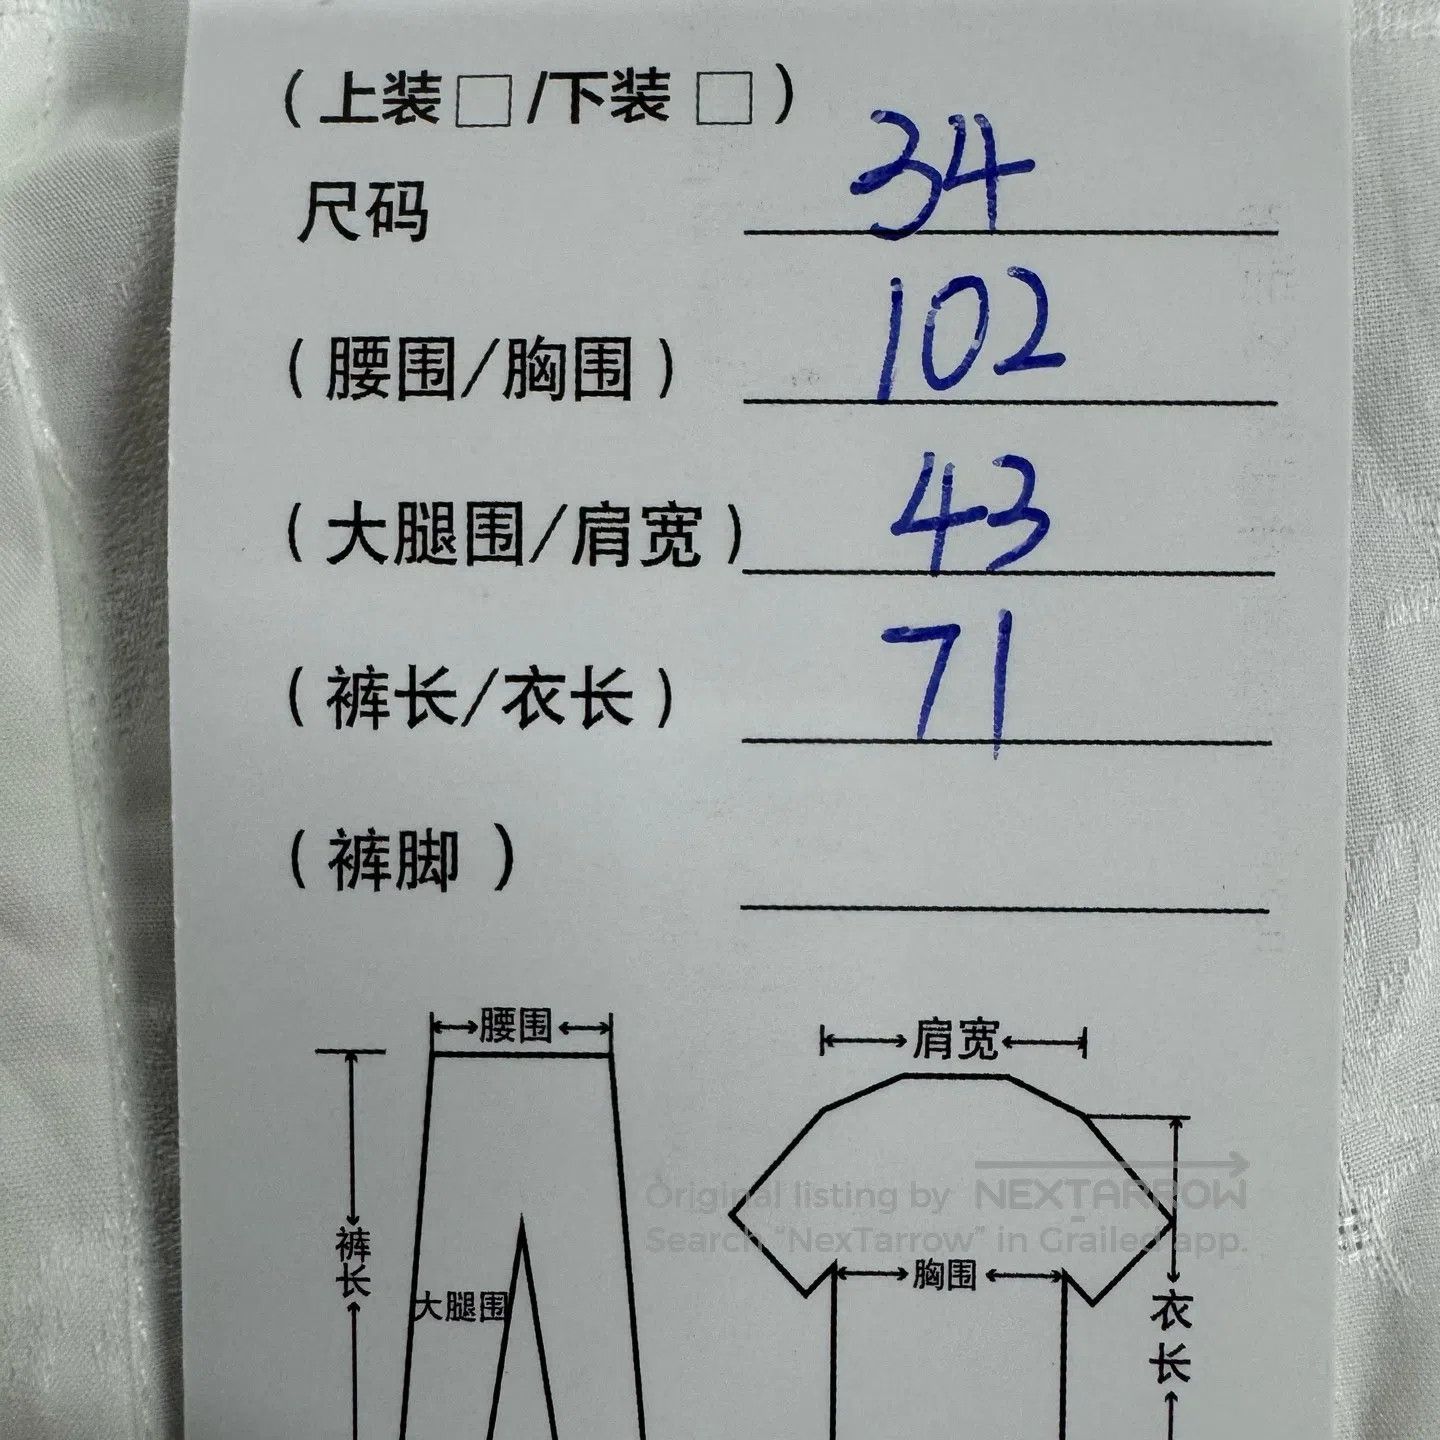 (上装□/下装□)
尺码 34
(腰围/胸围) 102
(大腿围/肩宽) 43
(裤长/衣长) 71
(裤脚)
腰围
肩宽
裤长
大腿围
胸围
衣长
Original listing by NEXTARROW
Search "NexTarrow" in Grailed app.